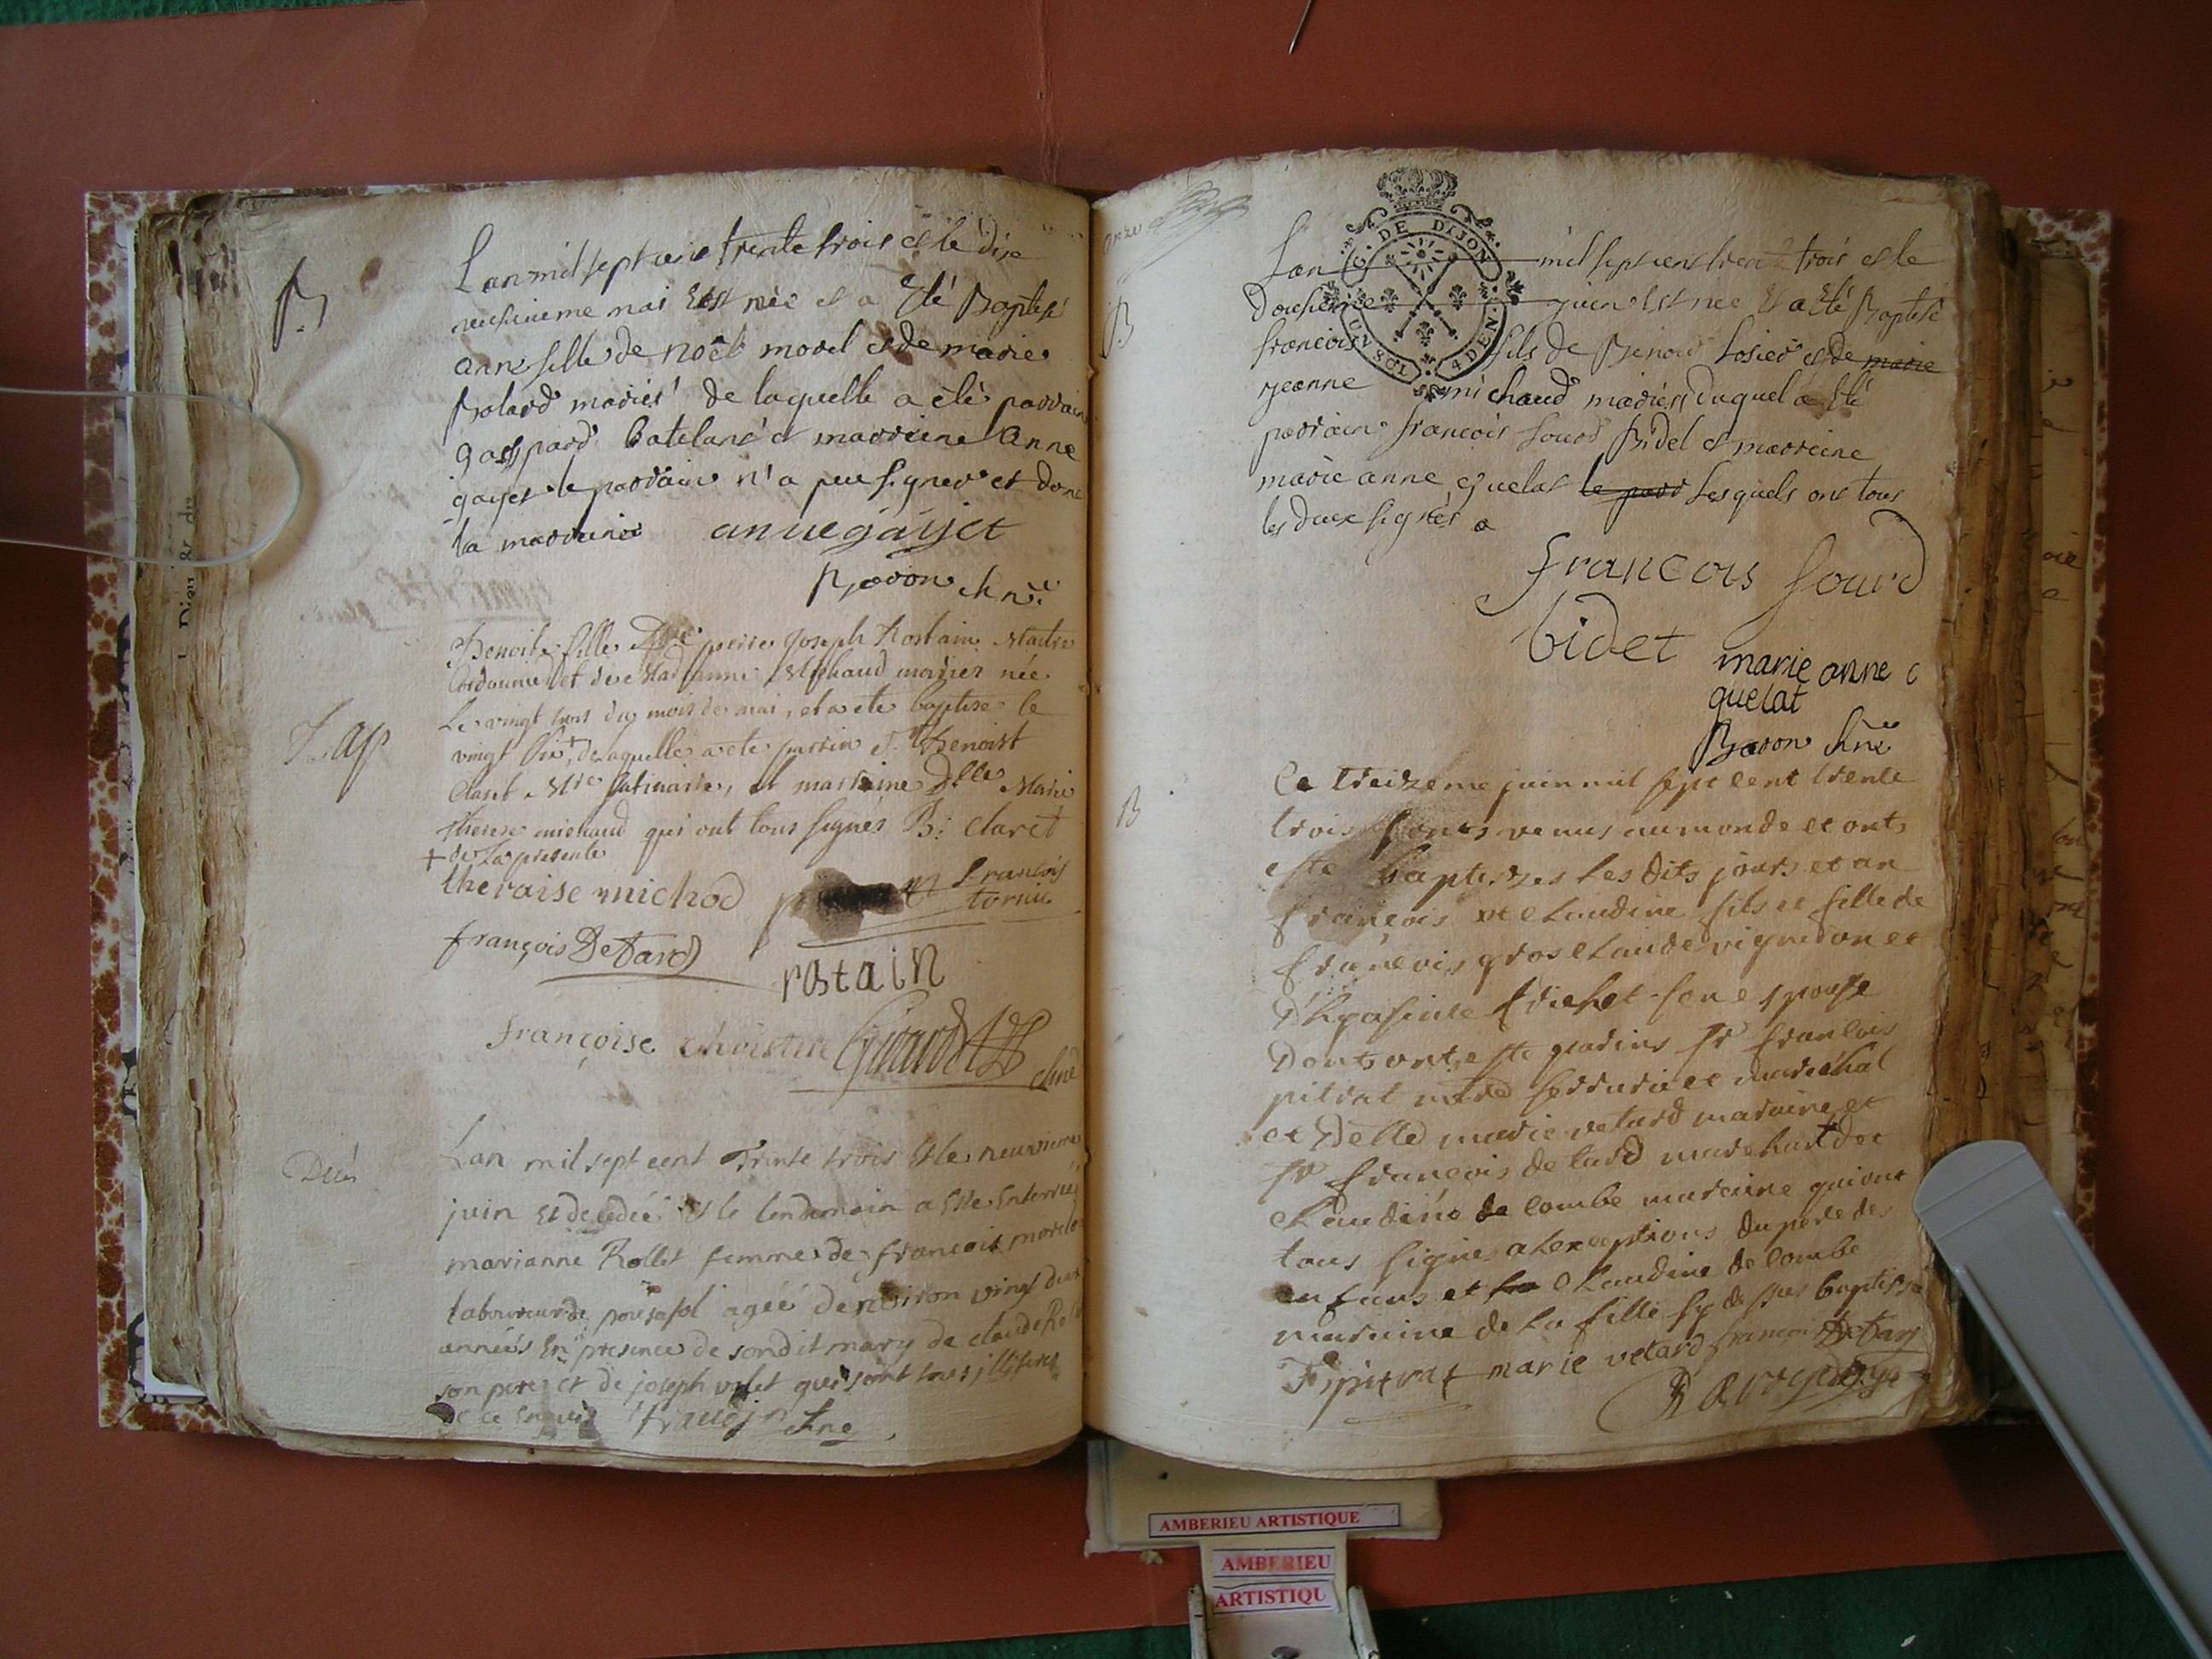 B
L'an mil sept cent trente trois et le dix
neufvieme mai Est née et a Eté Baptisé
anne fille de noël morel et de marie
Bolard mariés de laquelle a été parrain
gaspard Batelard et marreine Anne
gayet le parrain n'a peu signer et donc
la marreine anne gayet
Baron chne
Bap
Benoite fille de pierre Joseph Rostain Maitre
Cordonnier et de Michaud mariez née
Le vingt trois du mois de mai, et a ete baptisee le
vingt six+ de laquelle a ete parrin Sr Benoist
Claret Mtre, et marraine Dlle Marie
Therese michaud qui ont tous signés B: Claret
+ de La presente
theraise michod
francois
tornie
françois Detard
rostain
françoise christin Girard
chne
Décés
L'an mil sept cent Trente trois et le neuvieme
juin Et decedée et le lendemain a Eté Enterrée
marianne Rollet femme de francois morel
laboureur de agée d'environ vingt deux
années En presence de son dit mary de claude Rolet
son pere et de joseph volet qui sont tous illiteres
de ce Enquis chne
onze
B
G. DE DIJON
1 SOL 4 DEN.
L'an mil sept cent trente trois et le
Douzieme juin Est nee Et a Eté Baptisé
francois fils de Benoid Losier et de marie
jeanne michaud mariés Duquel a Eté
parrain francois sourd Bidel et marreine
marie anne cquelat le parr Lesquels ont tous
les deux signés
francois sourd
bidet marie anne c
quelat
Baron chne
B
Le treizeme juin mil sept cent trente
trois sonts venus au monde et onts
este baptiszes les dits jours et an
françois et claudine fils et fille de
françois gros claude vigneron et
son espouse
Dont ont este parins sr françois
pitrat mtre serrurie et marechal
et Delle marie vetard maraine et
sr françois detard marchant de
claudine de combe maraine qui ont
tous signes a lexceptions du pere des
enfans et la claudine de combe
maraine de la fille sy dessus baptisee
F pitrat marie vetard françois Detard
AMBERIEU ARTISTIQUE
AMBERIEU
ARTISTIQU